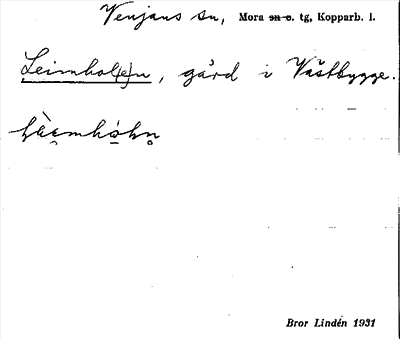 Venjans sn, Mora sn o. tg, Kopparb. l.
Leimhol(e)n, gård i Västbygge.
Bror Lindén 1931